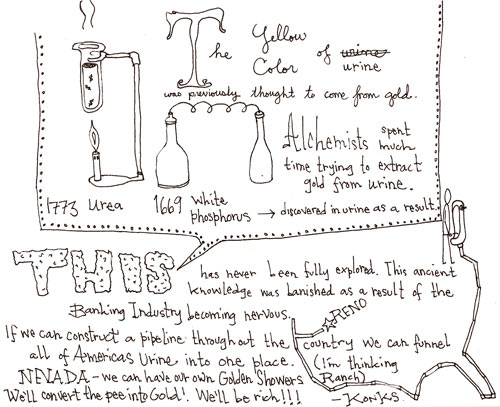 The Yellow
Color of urine
urine
was previously thought to come from gold.
Alchemists spent
much
time trying to extract
gold from urine.
1773 Urea
1669 White
phosphorus → discovered in urine as a result.
THIS has never been fully explored. This ancient
knowledge was banished as a result of the
Banking Industry becoming nervous.
RENO
If we can construct a pipeline throughout the country we can funnel
all of Americas Urine into one place. (I'm thinking
NEVADA - we can have our own Golden Showers Ranch)
We'll convert the pee into Gold! We'll be rich!!!
- KonKs.